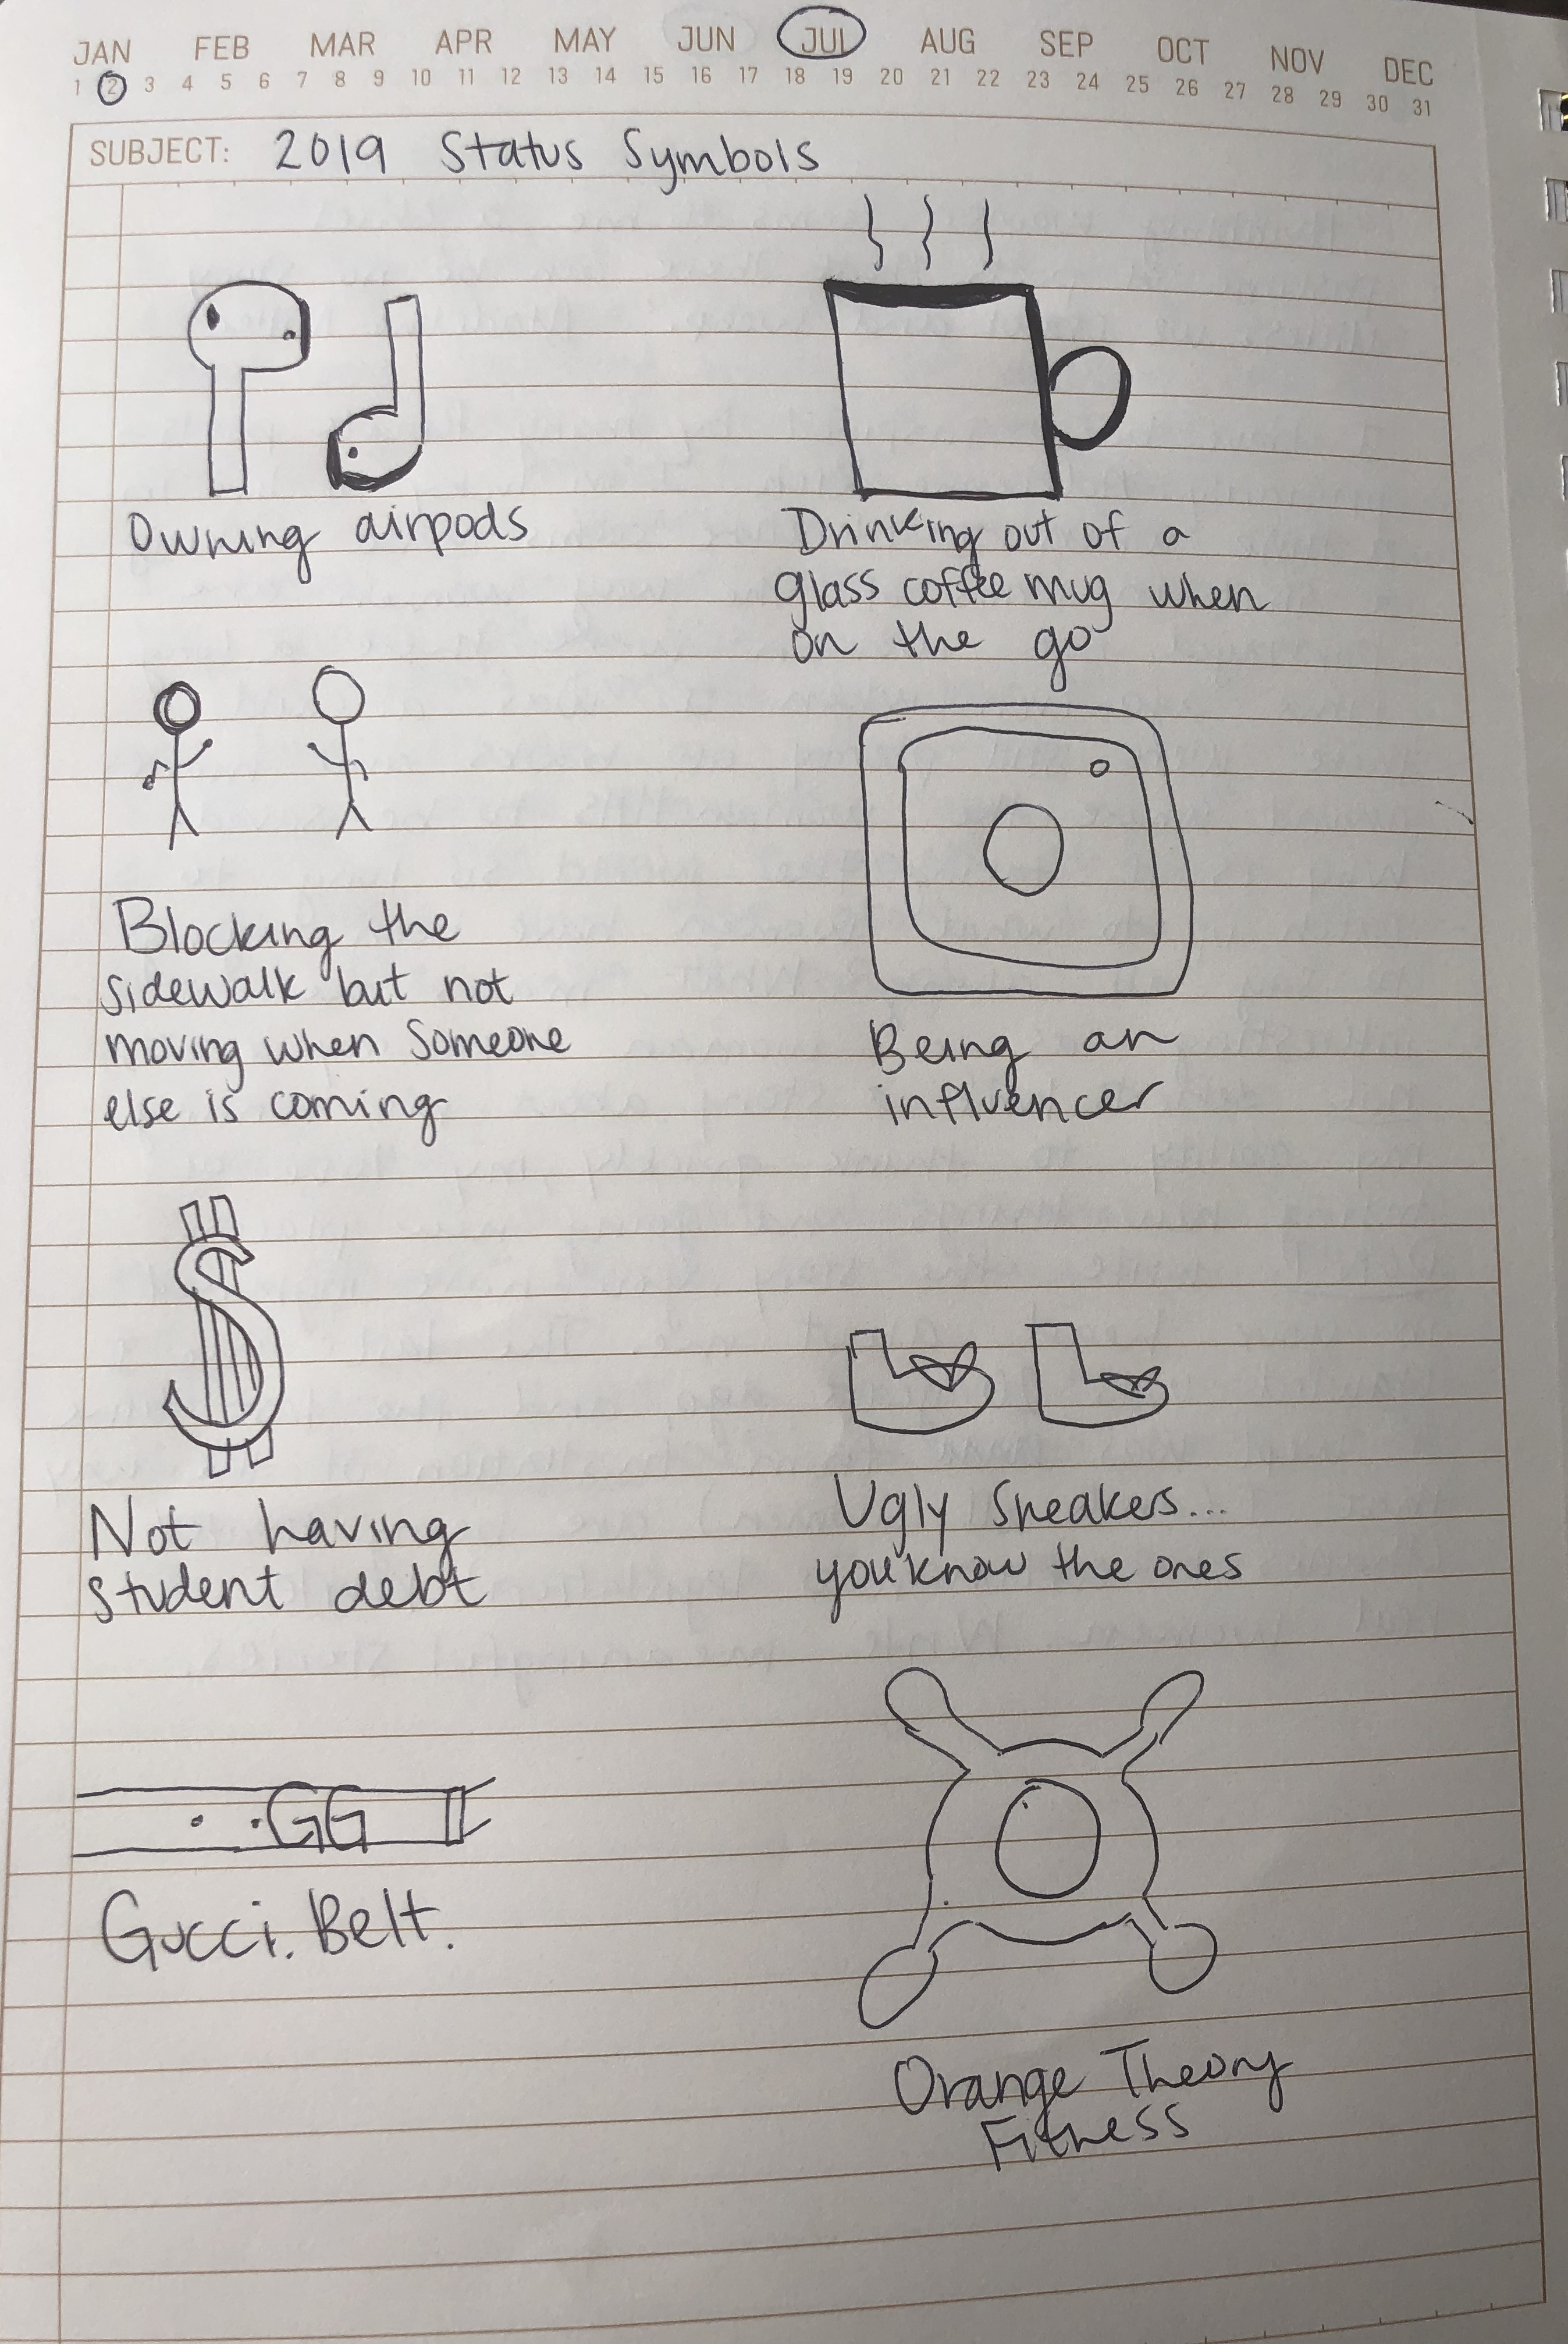 JAN FEB MAR APR MAY JUN JUL AUG SEP OCT NOV DEC
1 2 3 4 5 6 7 8 9 10 11 12 13 14 15 16 17 18 19 20 21 22 23 24 25 26 27 28 29 30 31
SUBJECT: 2019 Status Symbols
Owning airpods
Drinking out of a
glass coffee mug when
on the go
Blocking the
sidewalk but not
moving when someone
else is coming
Being an
influencer
Not having
student debt
Ugly Sneakers...
you know the ones
GG
Gucci. Belt.
Orange Theory
Fitness